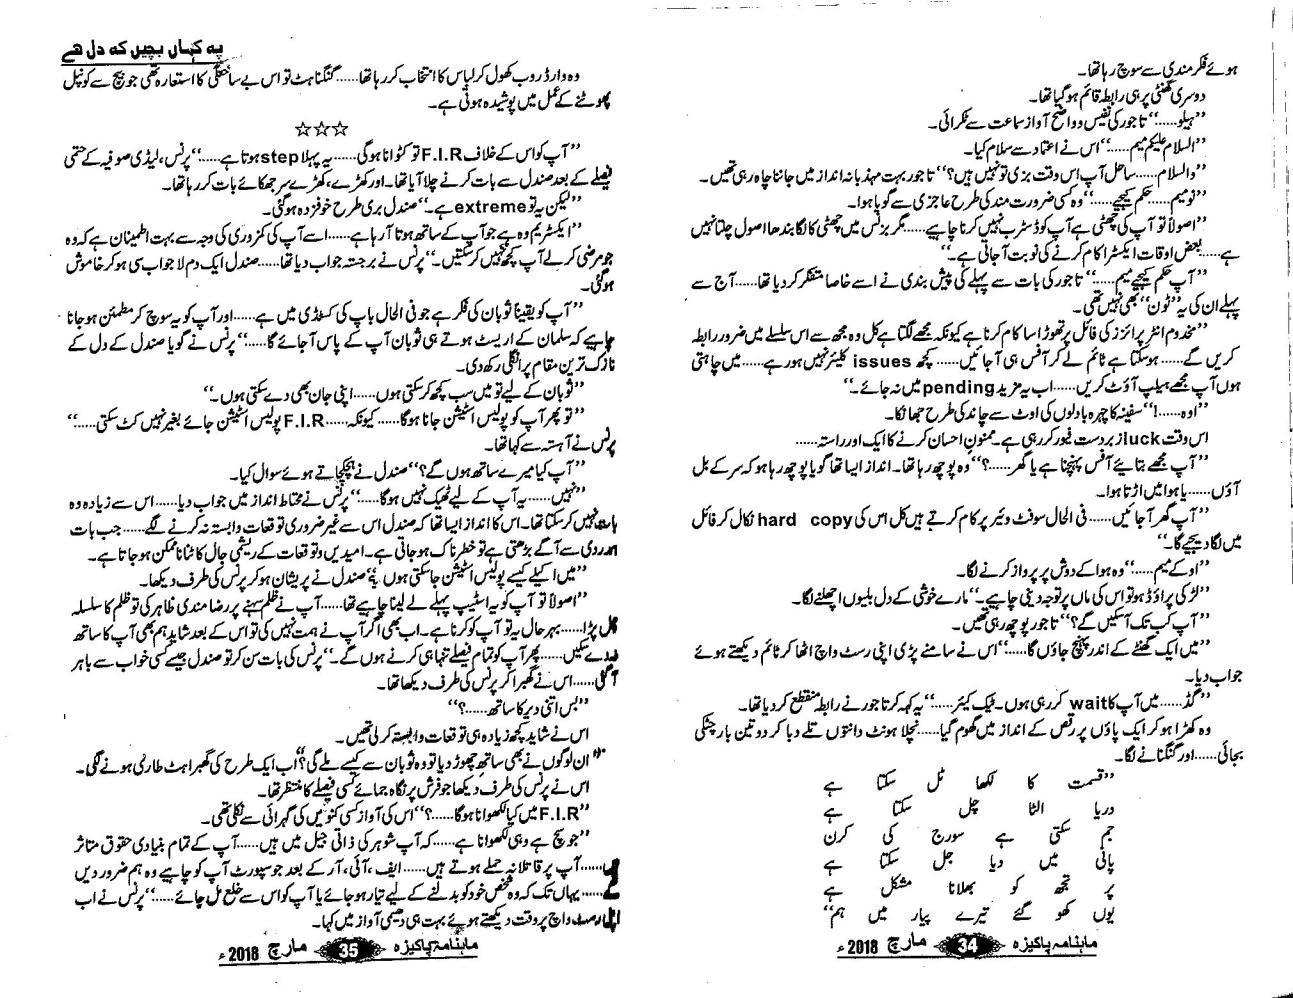 ہوئے فکر مندی سے سوچ رہا تھا۔
دوسری گھنٹی پر ہی رابطہ قائم ہو گیا تھا۔
”ہیلو......“ تاجور کی نفیس و واضح آواز سماعت سے ٹکرائی۔
”السلام علیکم میم......“ اس نے اعتماد سے سلام کیا۔
”والسلام...... ساحل آپ اس وقت بزی تو نہیں ہیں؟“ تاجور بہت مہذبانہ انداز میں جاننا چاہ رہی تھیں۔
”نو میم...... حکم کیجیے......“ وہ کسی ضرورت مند کی طرح عاجزی سے گویا ہوا۔
”اصولاً تو آپ کی چھٹی ہے آپ کو ڈسٹرب نہیں کرنا چاہیے...... مگر بزنس میں چھٹی کا لگا بندھا اصول چلتا نہیں
ہے...... بعض اوقات ایکسٹرا کام کرنے کی نوبت آجاتی ہے۔“
”آپ حکم کیجیے میم......“ تاجور کی بات سے پہلے کی پیش بندی نے اسے خاصا متفکر کر دیا تھا...... آج سے
پہلے ان کی یہ ”ٹون“ بھی نہیں تھی۔
”مخدوم انٹر پرائزز کی فائل پر تھوڑا سا کام کرنا ہے کیونکہ مجھے لگتا ہے کل وہ مجھ سے اس سلسلے میں ضرور رابطہ
کریں گے...... ہو سکتا ہے ٹائم لے کر آفس ہی آ جائیں...... کچھ issues کلیئر نہیں ہو رہے...... میں چاہتی
ہوں آپ مجھے ہیلپ آؤٹ کریں...... اب یہ مزید pending میں نہ جائے۔“
”اوہ......!“ سفینہ کا چہرہ بادلوں کی اوٹ سے چاند کی طرح جھانکا۔
اس وقت luck زبردست فیور کر رہی ہے۔ ممنونِ احسان کرنے کا ایک اور راستہ......
”آپ مجھے بتائیے آفس پہنچنا ہے یا گھر......؟“ وہ پوچھ رہا تھا۔ انداز ایسا تھا گویا پوچھ رہا ہو کہ سر کے بل
آؤں...... یا ہوا میں اڑتا ہوا۔
”آپ گھر آجائیں...... فی الحال سوفٹ وئیر پر کام کرتے ہیں کل اس کی hard copy نکال کر فائل
میں لگا دیجیے گا۔“
”اوکے میم......“ وہ ہوا کے دوش پر پرواز کرنے لگا۔
”لڑکی پراؤڈ ہو تو اس کی ماں پر توجہ دینی چاہیے۔“ مارے خوشی کے دل بلیوں اچھلنے لگا۔
”آپ کب تک آسکیں گے؟“ تاجور پوچھ رہی تھیں۔
”میں ایک گھنٹے کے اندر پہنچ جاؤں گا......“ اس نے سامنے پڑی اپنی رسٹ واچ اٹھا کر ٹائم دیکھتے ہوئے
جواب دیا۔
”گڈ...... میں آپ کا wait کر رہی ہوں۔ ٹیک کیئر......“ یہ کہہ کر تاجور نے رابطہ منقطع کر دیا تھا۔
وہ کھڑا ہو کر ایک پاؤں پر رقص کے انداز میں گھوم گیا...... نچلا ہونٹ دانتوں تلے دبا کر دو تین بار چٹکی
بجائی...... اور گنگنانے لگا۔
”قسمت کا لکھا ٹل سکتا ہے
دریا الٹا چل سکتا ہے
جم سکتی ہے سورج کی کرن
پانی میں دیا جل سکتا ہے
پر تجھ کو بھلانا مشکل ہے
یوں کھو گئے تیرے پیار میں ہم“
ماہنامہ پاکیزہ 34 مارچ 2018ء
یہ کہاں بچیں کہ دل ہے
وہ وارڈ روب کھول کر لباس کا انتخاب کر رہا تھا...... گنگناہٹ تو اس بے ساختگی کا استعارہ تھی جو بیج سے کونپل
پھوٹنے کے عمل میں پوشیدہ ہوتی ہے۔
☆☆☆
”آپ کو اس کے خلاف F.I.R تو کٹوانا ہوگی...... یہ پہلا step ہوتا ہے......“ پرنس، لیڈی صوفیہ کے حتمی
فیصلے کے بعد صندل سے بات کرنے چلا آیا تھا۔ اور کھڑے، کھڑے سر جھکائے بات کر رہا تھا۔
”لیکن یہ تو extreme ہے۔“ صندل بری طرح خوفزدہ ہوگئی۔
”ایکسٹریم وہ ہے جو آپ کے ساتھ ہوتا آ رہا ہے...... اسے آپ کی کمزوری کی وجہ سے بہت اطمینان ہے کہ وہ
جو مرضی کر لے آپ کچھ نہیں کر سکتیں۔“ پرنس نے برجستہ جواب دیا تھا...... صندل ایک دم لاجواب سی ہو کر خاموش
ہوگئی۔
”آپ کو یقیناً ثوبان کی فکر ہے جو فی الحال باپ کی کسٹڈی میں ہے...... اور آپ کو یہ سوچ کر مطمئن ہو جانا
چاہیے کہ سلمان کے اریسٹ ہوتے ہی ثوبان آپ کے پاس آجائے گا......“ پرنس نے گویا صندل کے دل کے
نازک ترین مقام پر انگلی رکھ دی۔
”ثوبان کے لیے تو میں سب کچھ کر سکتی ہوں...... اپنی جان بھی دے سکتی ہوں۔“
”تو پھر آپ کو پولیس اسٹیشن جانا ہوگا...... کیونکہ...... F.I.R پولیس اسٹیشن جائے بغیر نہیں کٹ سکتی......“
پرنس نے آہستہ سے کہا تھا۔
”آپ کیا میرے ساتھ ہوں گے؟“ صندل نے ہچکچاتے ہوئے سوال کیا۔
”نہیں...... یہ آپ کے لیے ٹھیک نہیں ہوگا......“ پرنس نے محتاط انداز میں جواب دیا...... اس سے زیادہ وہ
بات نہیں کر سکتا تھا۔ اس کا انداز ایسا تھا کہ صندل اس سے غیر ضروری توقعات وابستہ نہ کرنے لگے...... جب بات
ہمدردی سے آگے بڑھتی ہے تو خطرناک ہو جاتی ہے۔ امیدیں و توقعات کے ریشمی جال کا ٹنا ناممکن ہو جاتا ہے۔
”میں اکیلے کیسے پولیس اسٹیشن جاسکتی ہوں؟“ صندل نے پریشان ہو کر پرنس کی طرف دیکھا۔
”اصولاً تو آپ کو یہ اسٹیپ پہلے لے لینا چاہیے تھا...... آپ نے ظلم سہنے پر رضا مندی ظاہر کی تو ظلم کا سلسلہ
چل پڑا...... بہر حال یہ تو آپ کو کرنا ہے۔ اب بھی اگر آپ نے ہمت نہیں کی تو اس کے بعد شاید ہم بھی آپ کا ساتھ
نہ دے سکیں...... پھر آپ کو تمام فیصلے تنہا ہی کرنے ہوں گے۔“ پرنس کی بات سن کر تو صندل جیسے کسی خواب سے باہر
آگئی...... اس نے گھبرا کر پرنس کی طرف دیکھا تھا۔
”بس اتنی دیر کا ساتھ......؟“
اس نے شاید کچھ زیادہ ہی توقعات وابستہ کر لی تھیں۔
”ان لوگوں نے بھی ساتھ چھوڑ دیا تو وہ ثوبان سے کیسے ملے گی؟“ اب ایک طرح کی گھبراہٹ طاری ہونے لگی۔
اس نے پرنس کی طرف دیکھا جو فرش پر نگاہ جمائے کسی فیصلے کا منتظر تھا۔
”F.I.R میں کیا لکھوانا ہوگا......؟“ اس کی آواز کسی کنویں کی گہرائی سے نکلی تھی۔
”جو سچ ہے وہی لکھوانا ہے...... کہ آپ شوہر کی ذاتی جیل میں ہیں...... آپ کے تمام بنیادی حقوق متاثر
ہیں...... آپ پر قاتلانہ حملے ہوتے ہیں...... ایف، آئی، آر کے بعد جو سپورٹ آپ کو چاہیے وہ ہم ضرور دیں
گے...... یہاں تک کہ وہ شخص خود کو بدلنے کے لیے تیار ہو جائے یا آپ کو اس سے خلع مل جائے......“ پرنس نے اب
اپنی رسٹ واچ پر وقت دیکھتے ہوئے بہت ہی دھیمی آواز میں کہا۔
ماہنامہ پاکیزہ 35 مارچ 2018ء